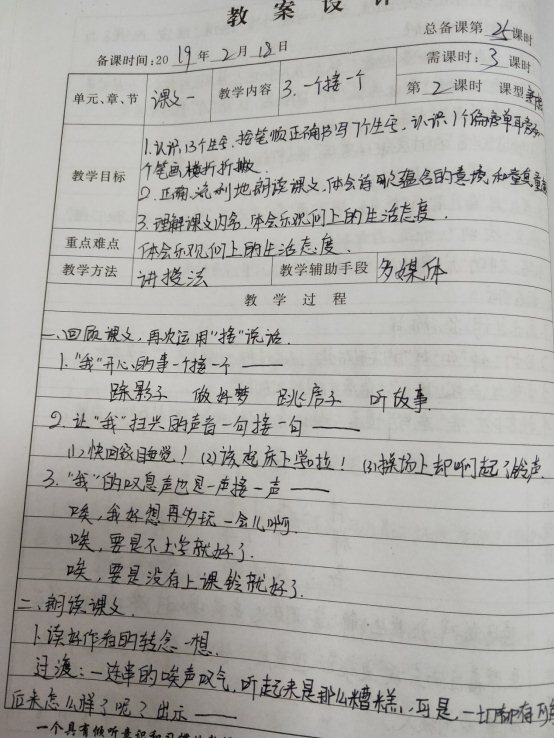 教案设计
总备课第25课时
备课时间:2019年2月18日
需课时:3课时
单元、章、节 课文一 教学内容 3.一个接一个
第2课时 课型
教学目标
1.认识13个生字,按笔顺正确书写7个生字,认识1个偏旁单耳旁和
个笔画横折折撇
2.正确、流利地朗读课文,体会诗歌蕴含的意境和童真童趣
3.理解课文内容,体会乐观向上的生活态度.
重点难点 体会乐观向上的生活态度.
教学方法 讲授法 教学辅助手段 多媒体
教学过程
一、回顾课文,再次运用"接"说话.
1."我"开心的事一个接一个——
踩影子 做好梦 跳房子 听故事.
2.让"我"扫兴的声音一句接一句——
(1)快回家睡觉!(2)该起床上学啦!(3)操场上却响起了铃声.
3."我"的叹息声也是一声接一声——
唉,我好想再多玩一会儿啊.
唉,要是不上学就好了.
唉,要是没有上课铃就好了.
二、朗读课文.
1.读好作者的转念一想.
过渡:一连串的唉声叹气,听起来是那么糟糕,可是,一切都有可
后来怎么样了呢?出示——
一个具有倾听意识和习惯的